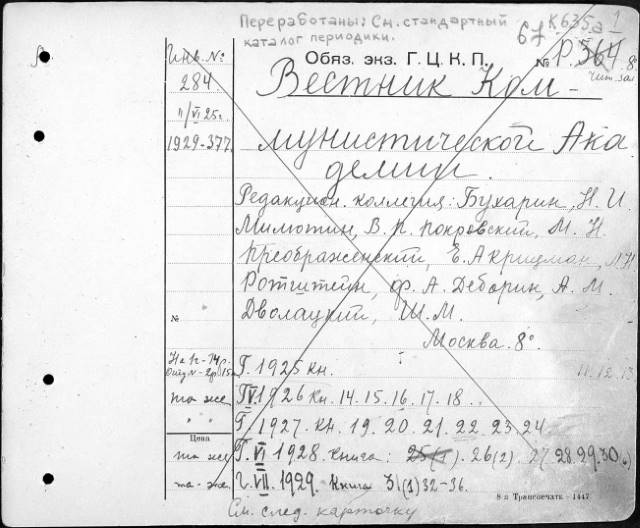 Переработаны: См. стандартный
каталог периодики.
67 К635а 1
Инв. №
Обяз. экз. Г. Ц. К. П. № Р. 364 8.
Чит. зал
284
Вестник Ком-
11/VI 25г.
1929-377
мунистической Ака
демии.
Редакцион. коллегия: Бухарин, Н. И.
Милютин, В. П. Покровский, М. Н.
Преображенский, Е. А Крицман, Л Н
Ротштейн, Ф. А. Деборин, А. М.
№ Дволацкий, Ш. М.
Москва. 8°.
Г. 1925 Кн. 11. 12. 13
то же Г. V. 1926 Кн. 14. 15. 16. 17. 18
" " Г. 1927. Кн. 19. 20. 21. 22. 23. 24.
Цена
то же Г. VI 1928. Книга: 25(1). 26(2). 27 28. 29. 30(6)
то-же. Г. VII. 1929. Книга 31(1) 32-36.
8-я Транспечать - 1447
См. след. карточку